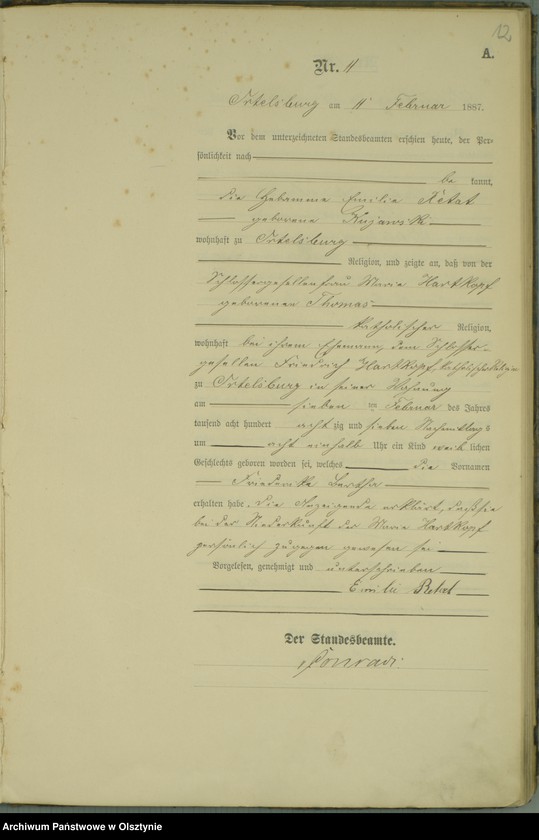 12
A.
Nr. 11
Ortelsburg am 11 Februar 1887.
Vor dem unterzeichneten Standesbeamten erschien heute, der Per=
sönlichkeit nach
be kannt,
die Hebamme Emilie Retat
geborene Kujawski
wohnhaft zu Ortelsburg
Religion, und zeigte an, daß von der
Schlossergesellenfrau Marie Hartkopf
geborenen Thomas
katholischer Religion,
wohnhaft bei ihrem Ehemann, dem Schlosser-
gesellen Friedrich Hartkopf, katholischer Religion
zu Ortelsburg in seiner Wohnung
am sieben ten Februar des Jahres
tausend acht hundert acht zig und sieben Nachmittags
um acht einhalb Uhr ein Kind weib lichen
Geschlechts geboren worden sei, welches die Vornamen
Friederike Bertha
erhalten habe. Die Anzeigende erklärt, daß sie
bei der Niederkunft der Marie Hartkopf
persönlich zugegen gewesen sei
Vorgelesen, genehmigt und unterschrieben
Emilie Retat
Der Standesbeamte.
Conradi
Archiwum Państwowe w Olsztynie